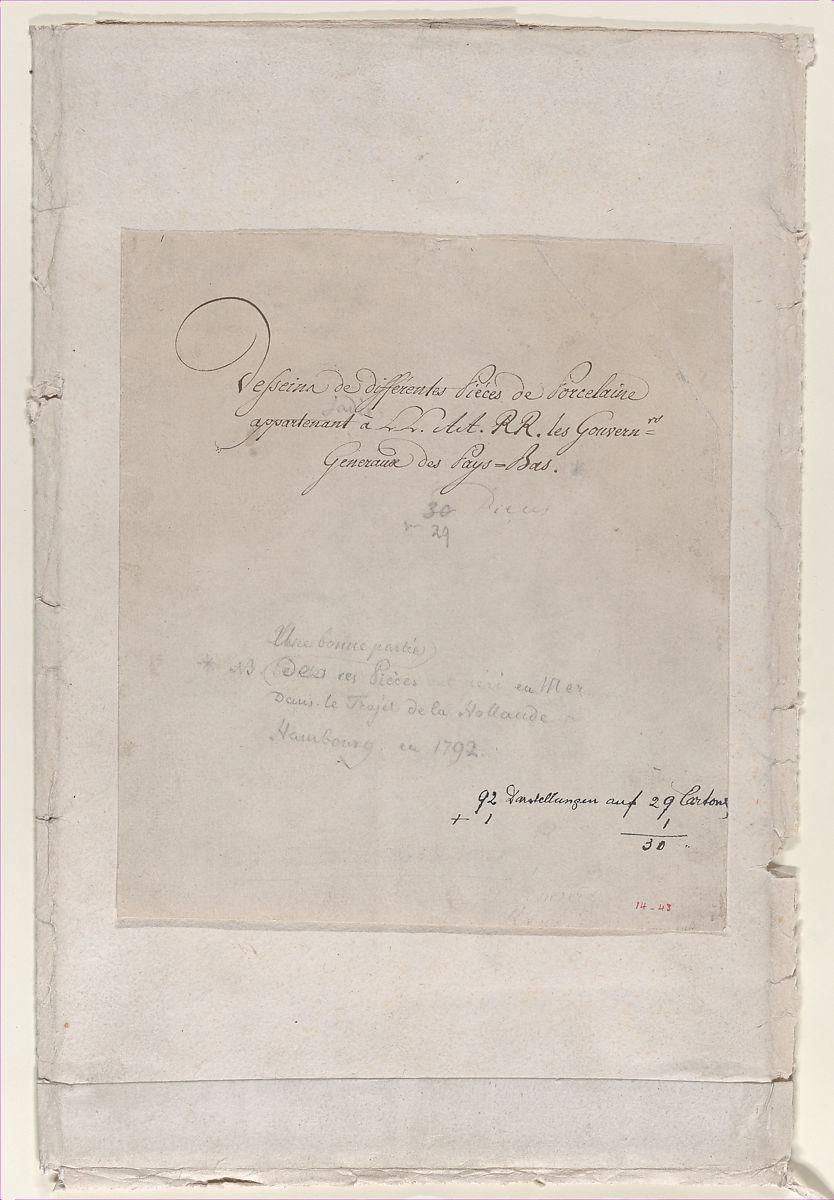 Desseins de différentes Pièces de Porcelaine
jadis
appartenant à LL. AA. RR. les Gouvern=rs
Generaux des Pays=Bas.
30
29
Une bonne partie
* NB (Des ces Pièces ont péri en Mer
Dans le Trajet de la Hollande a
Hambourg en 1792.
92 Darstellungen auf 29 Cartons
+ 1 1
30
14-43